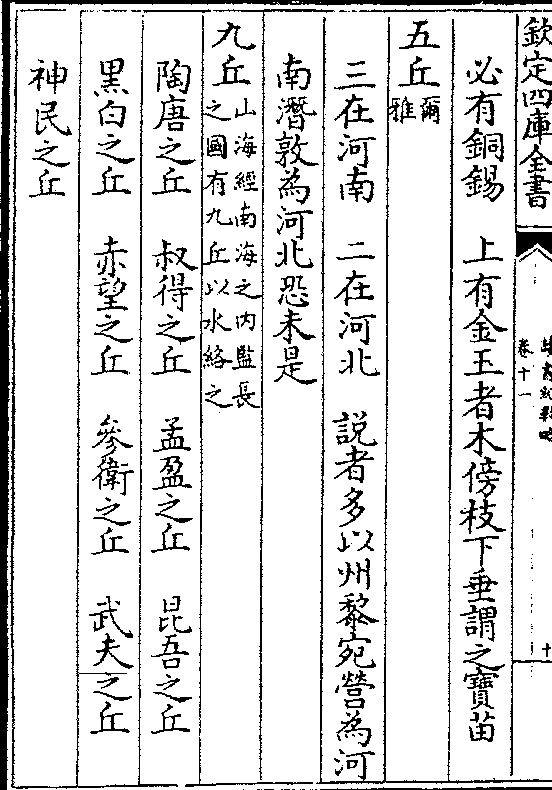 欽定四庫全書
卷十一
十
必有銅錫　上有金玉者木傍枝下垂謂之寶苗
五丘爾雅
三在河南　二在河北　說者多以州黎宛營為河
南潛敦為河北恐未是
九丘山海經南海之内監長之國有九丘以水絡之
陶唐之丘　叔得之丘　孟盈之丘　昆吾之丘
黑白之丘　赤望之丘　參衛之丘　武夫之丘
神民之丘